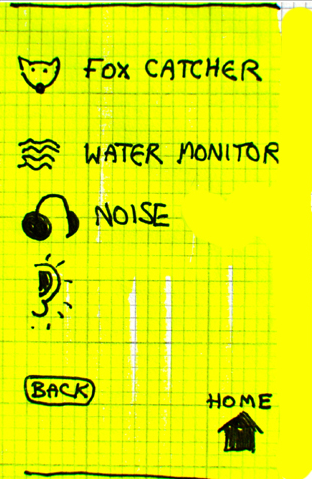 FOX CATCHER
WATER MONITOR
NOISE
BACK
HOME